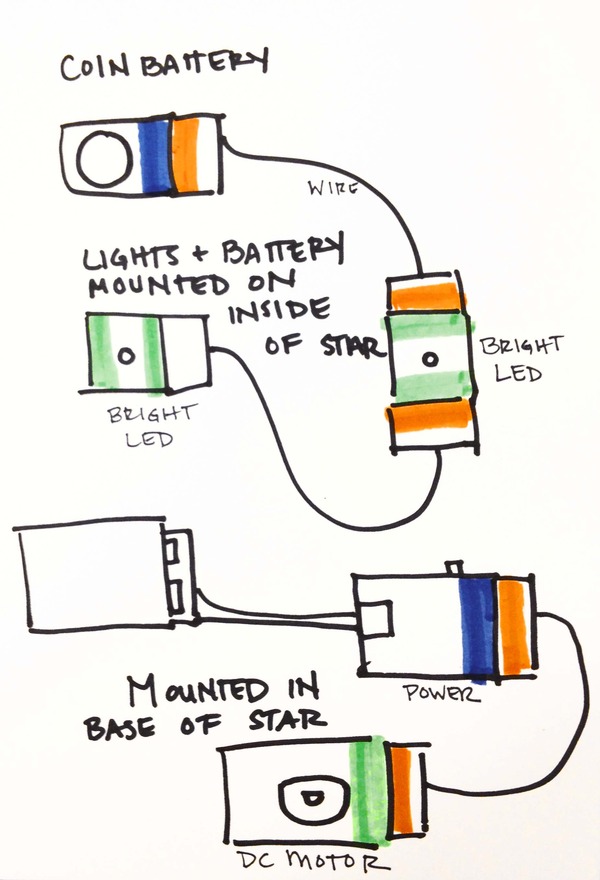 COIN BATTERY
WIRE
LIGHTS + BATTERY
MOUNTED ON
INSIDE
OF STAR
BRIGHT
LED
BRIGHT
LED
POWER
MOUNTED IN
BASE OF STAR
DC MOTOR